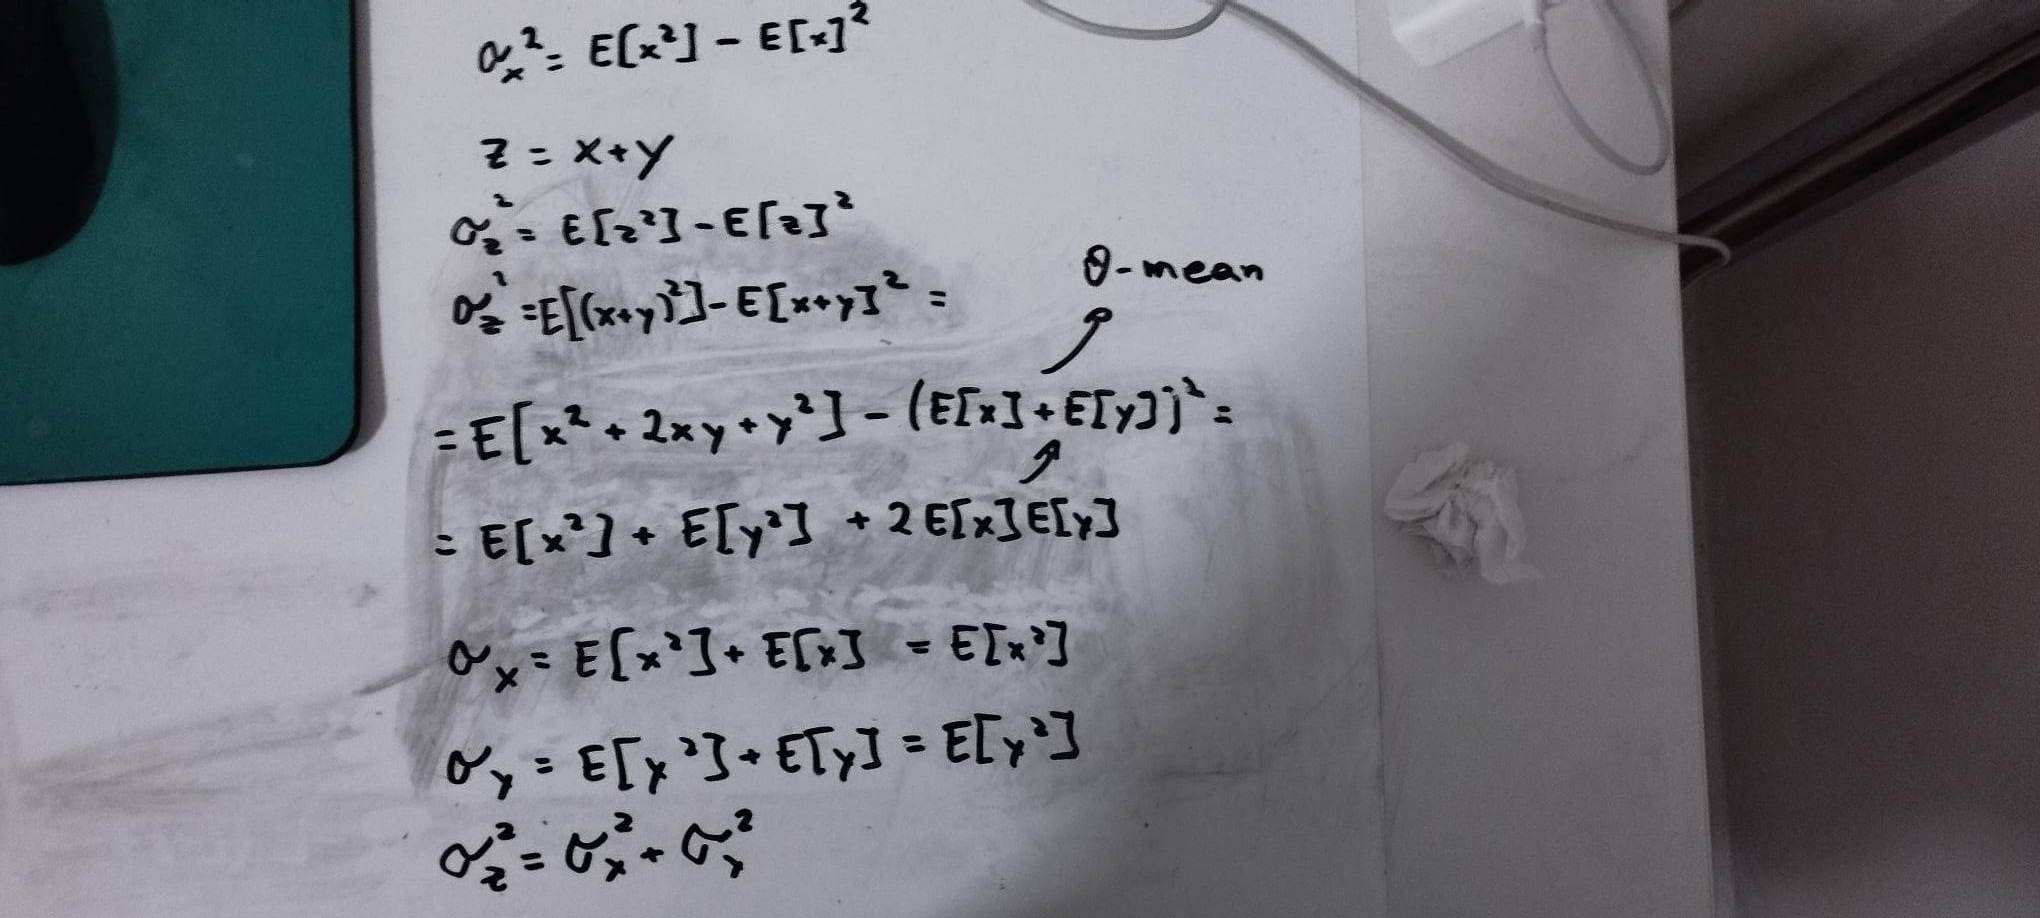 σₓ² = E[x²] - E[x]²
z = x+y
σ_z² = E[z²] - E[z]²
σ_z² = E[(x+y)²] - E[x+y]² =
0-mean
= E[x² + 2xy + y²] - (E[x] + E[y])² =
= E[x²] + E[y²] + 2E[x]E[y]
σₓ = E[x²] + E[x] = E[x²]
σ_y = E[y²] + E[y] = E[y²]
σ_z² = σₓ² + σ_y²